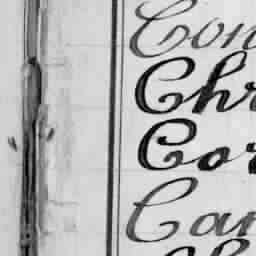 Con
Chr
Cor
Car